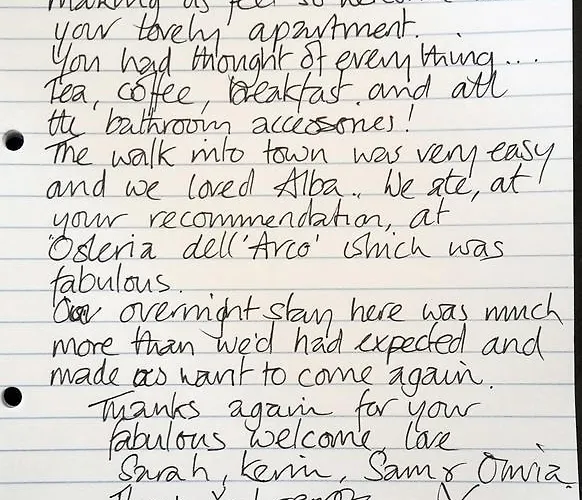 making us feel so
your lovely apartment.
You had thought of everything...
Tea, coffee, breakfast and all
the bathroom accessories!
The walk into town was very easy
and we loved Alba. We ate, at
your recommendation, at
'Osteria dell'Arco' which was
fabulous.
Our overnight stay here was much
more than we'd had expected and
made us want to come again.
Thanks again for your
fabulous welcome, love
Sarah, Kevin, Sam &